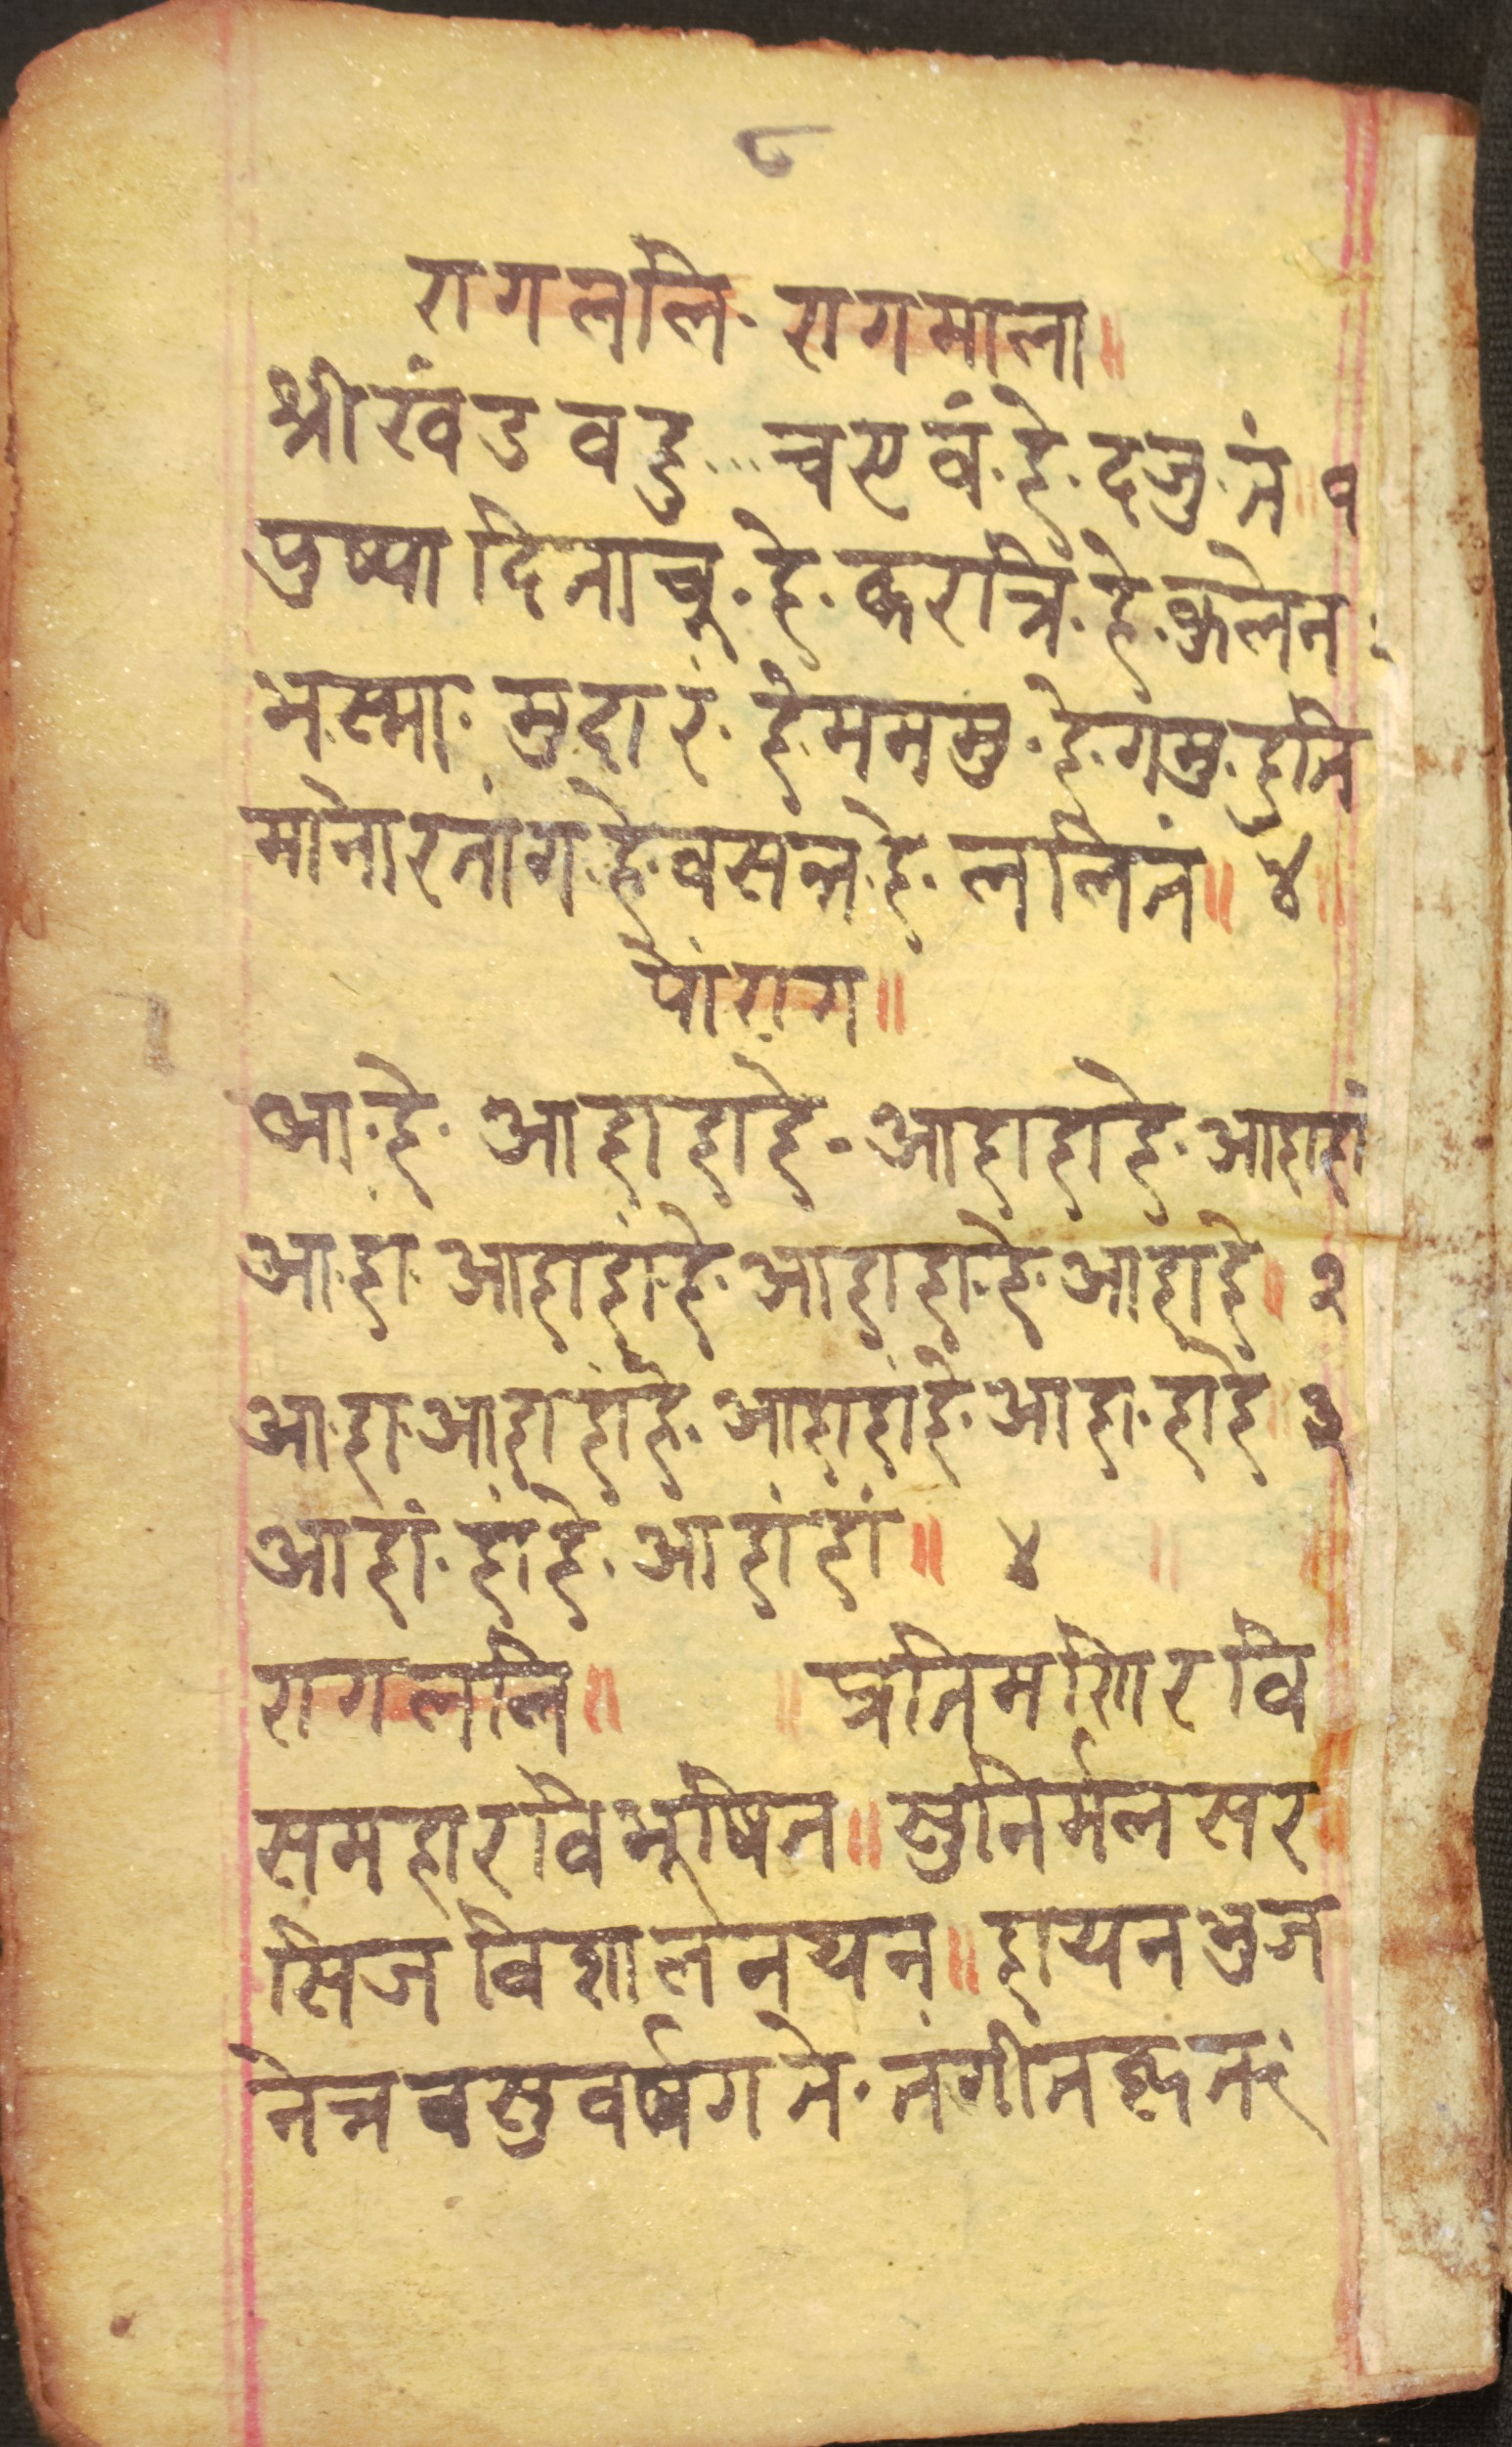 ८
रागललि. रागमाला॥
श्रीखंड वदु ... चस्वं. हे. दजु. नं॥ १
पुष्पादिनाचु. हे. करात्रिं. हे.
भस्मा. मुदारं. हे मममु. हे. गमु. हाति
मानारनांग. हे. वसन्त. हे. ललितं॥ ४॥
पांराग॥
आ. हे. आहाहाहे. आहाहाहे. आहाहां
आ. हां. आहाहां. हे. आहाहां. हे. आहांहे॥ २
आ. हा. आहाहांहे. आहाहांहे. आहा. हाहें॥ ३
आहां. हांहें. आहांहां॥ ४॥ ॥
रागललि॥ ॥ प्रतिमणिरवि
समहारविभूषित॥ सुनिर्मलसर
सिजविशालनयन॥ हायनभुज
नेत्रवसुवर्षगते.